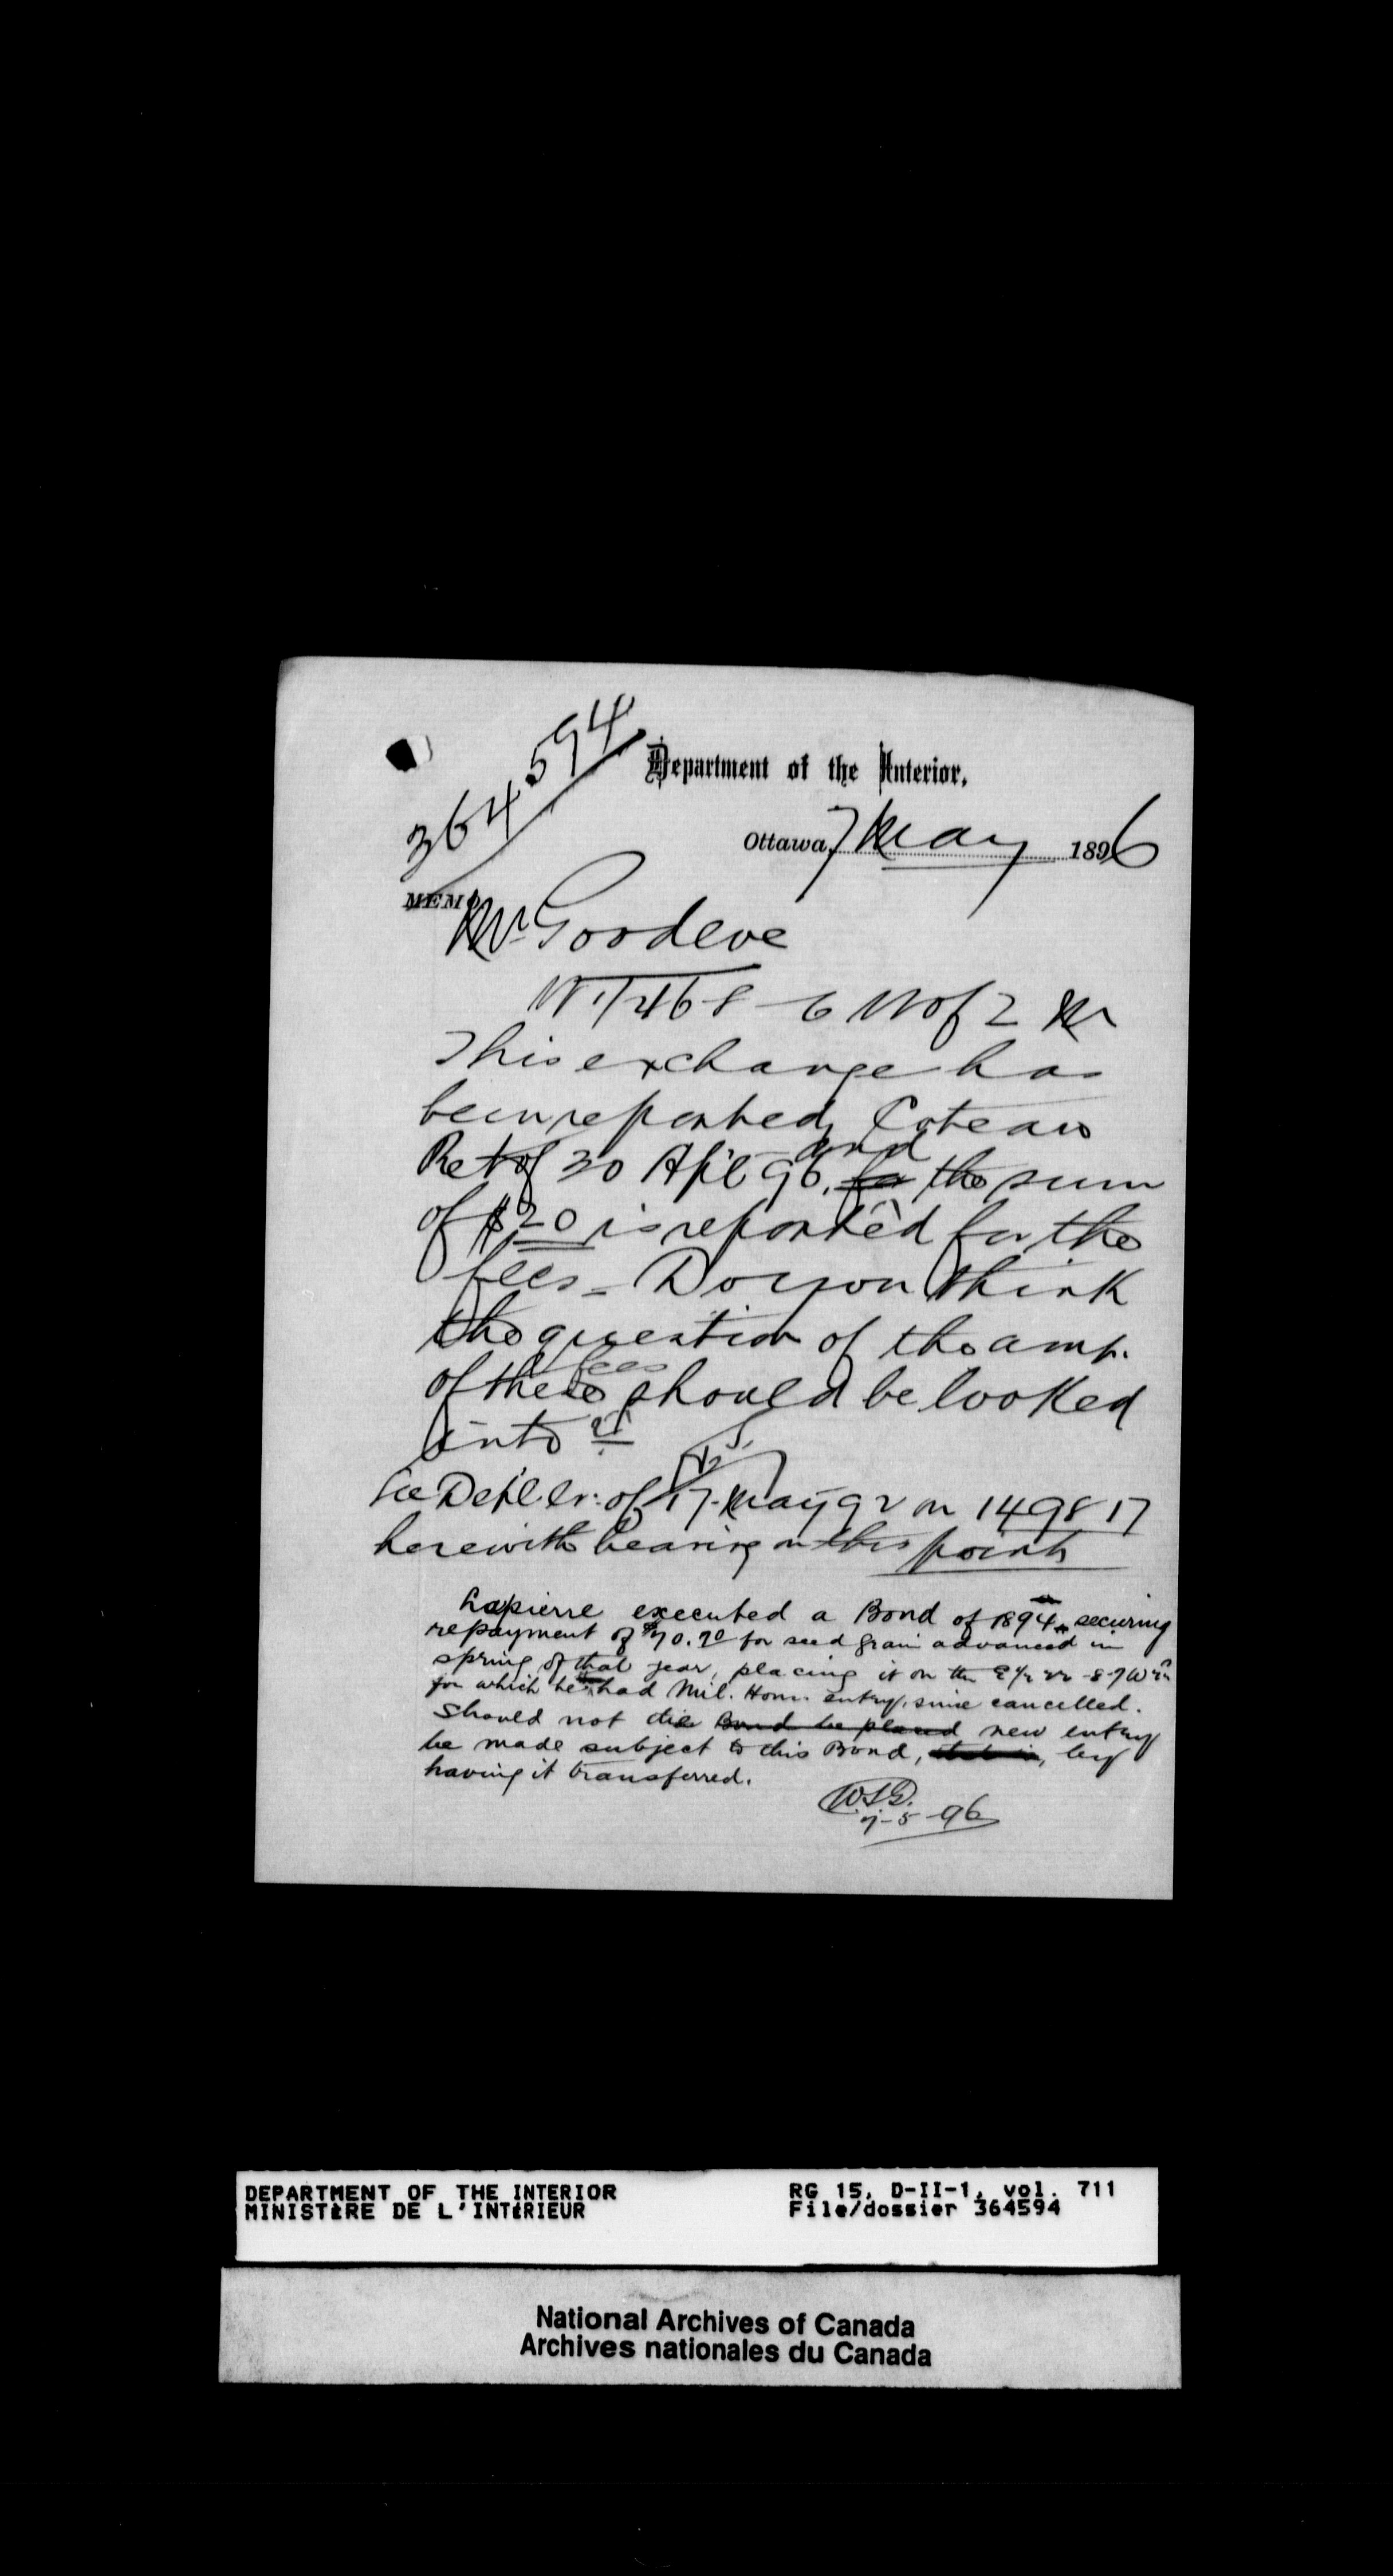 364594
Department of the Interior.
Ottawa, 7 May 1896
MEMO
Mr. Goodeve
W 1/2 46-8-6 W of 2 M
This exchange has
been reported, Coteau
Ret of 30 Apl 96, and the sum
of $20 is reported for the
fees - Do you think
the question of the amt.
of these fees should be looked
into ?
See Depl. lr. of 17 May 92 on 149817
herewith bearing on this point
Lapierre executed a Bond of 1894 securing
repayment of $70.70 for seed grain advanced in
spring of that year, placing it on the E 1/2 22-8-7 W 2n
for which he had Mil. Hom. entry, since cancelled.
Should not the Bond be placed new entry
be made subject to this Bond, by
having it transferred.
7-5-96
DEPARTMENT OF THE INTERIOR
MINISTÈRE DE L'INTÉRIEUR
RG 15, D-II-1, vol. 711
File/dossier 364594
National Archives of Canada
Archives nationales du Canada